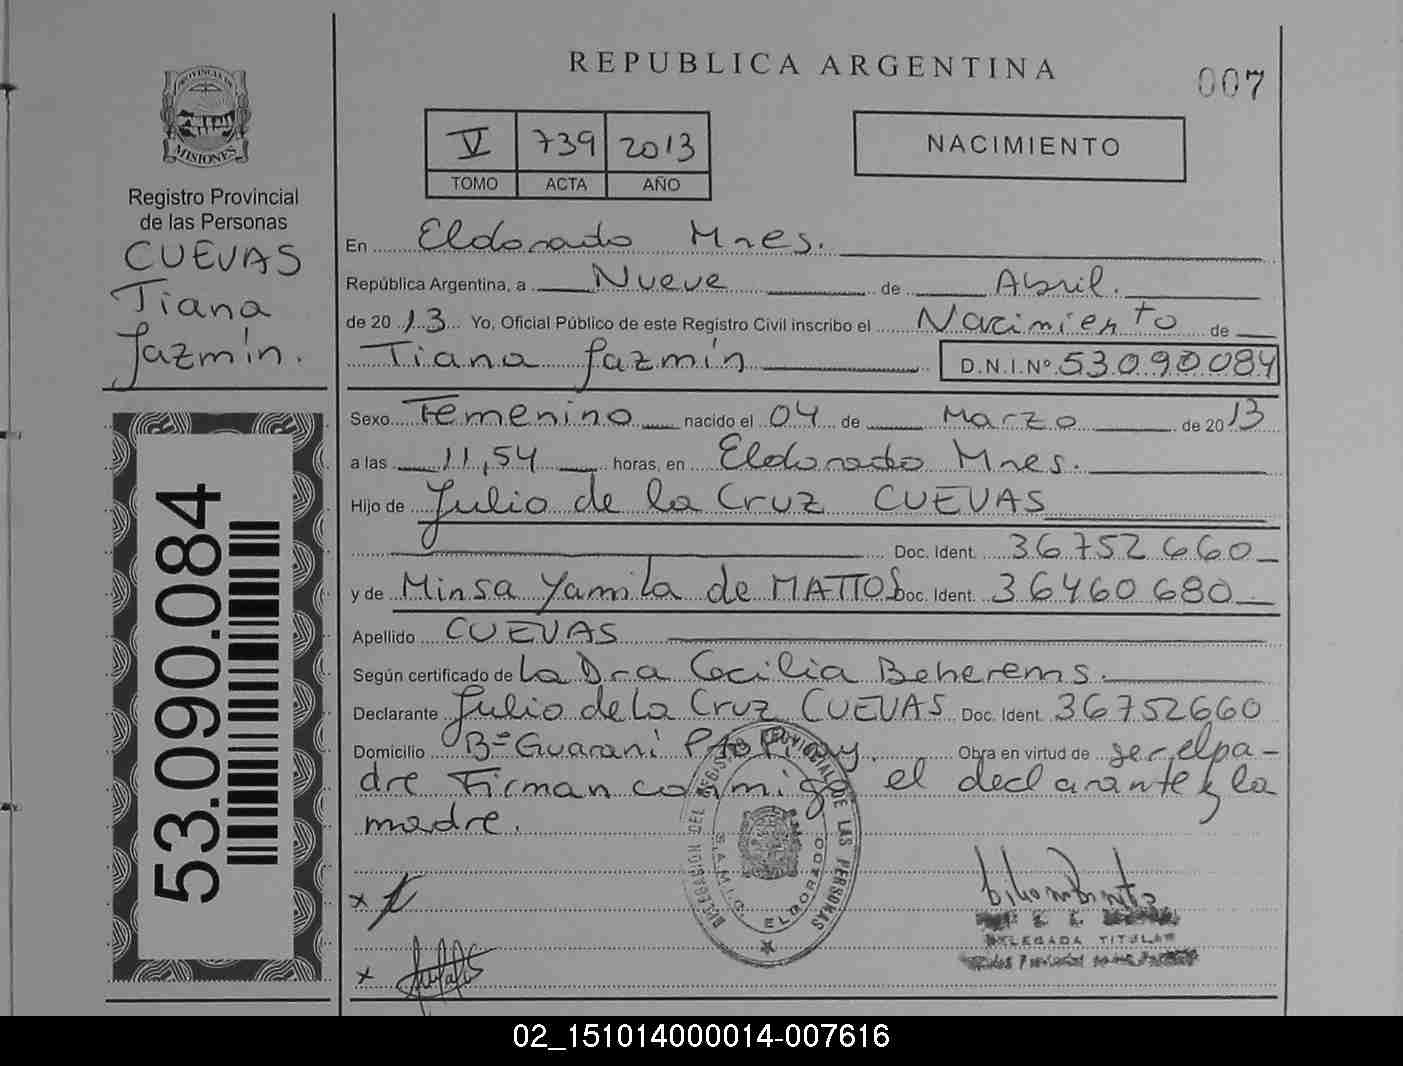 REPUBLICA ARGENTINA
007
PROVINCIA DE
MISIONES
Registro Provincial
de las Personas
CUEVAS
Tiana
Jazmín.
V 739 2013
TOMO ACTA AÑO
NACIMIENTO
En Eldorado Mnes.
República Argentina, a Nueve de Abril.
de 2013 Yo, Oficial Público de este Registro Civil inscribo el Nacimiento de
Tiana Jazmín D.N.I.Nº 53090084
Sexo Femenino nacido el 04 de Marzo de 2013
a las 11,54 horas, en Eldorado Mnes.
Hijo de Julio de la Cruz CUEVAS
Doc. Ident. 36752660
y de Minsa Yamila de MATTOS Doc. Ident. 36460680
Apellido CUEVAS
Según certificado de La Dra Cecilia Beherems.
Declarante Julio de La Cruz CUEVAS Doc. Ident. 36752660
Domicilio Bº Guarani Pto Piray. Obra en virtud de ser el pa-
dre Firman conmigo el declarante y la
madre.
53.090.084
DELEGACION DEL REGISTRO PROVINCIAL DE LAS PERSONAS
ELDORADO
DELEGADA TITULAR
02_151014000014-007616